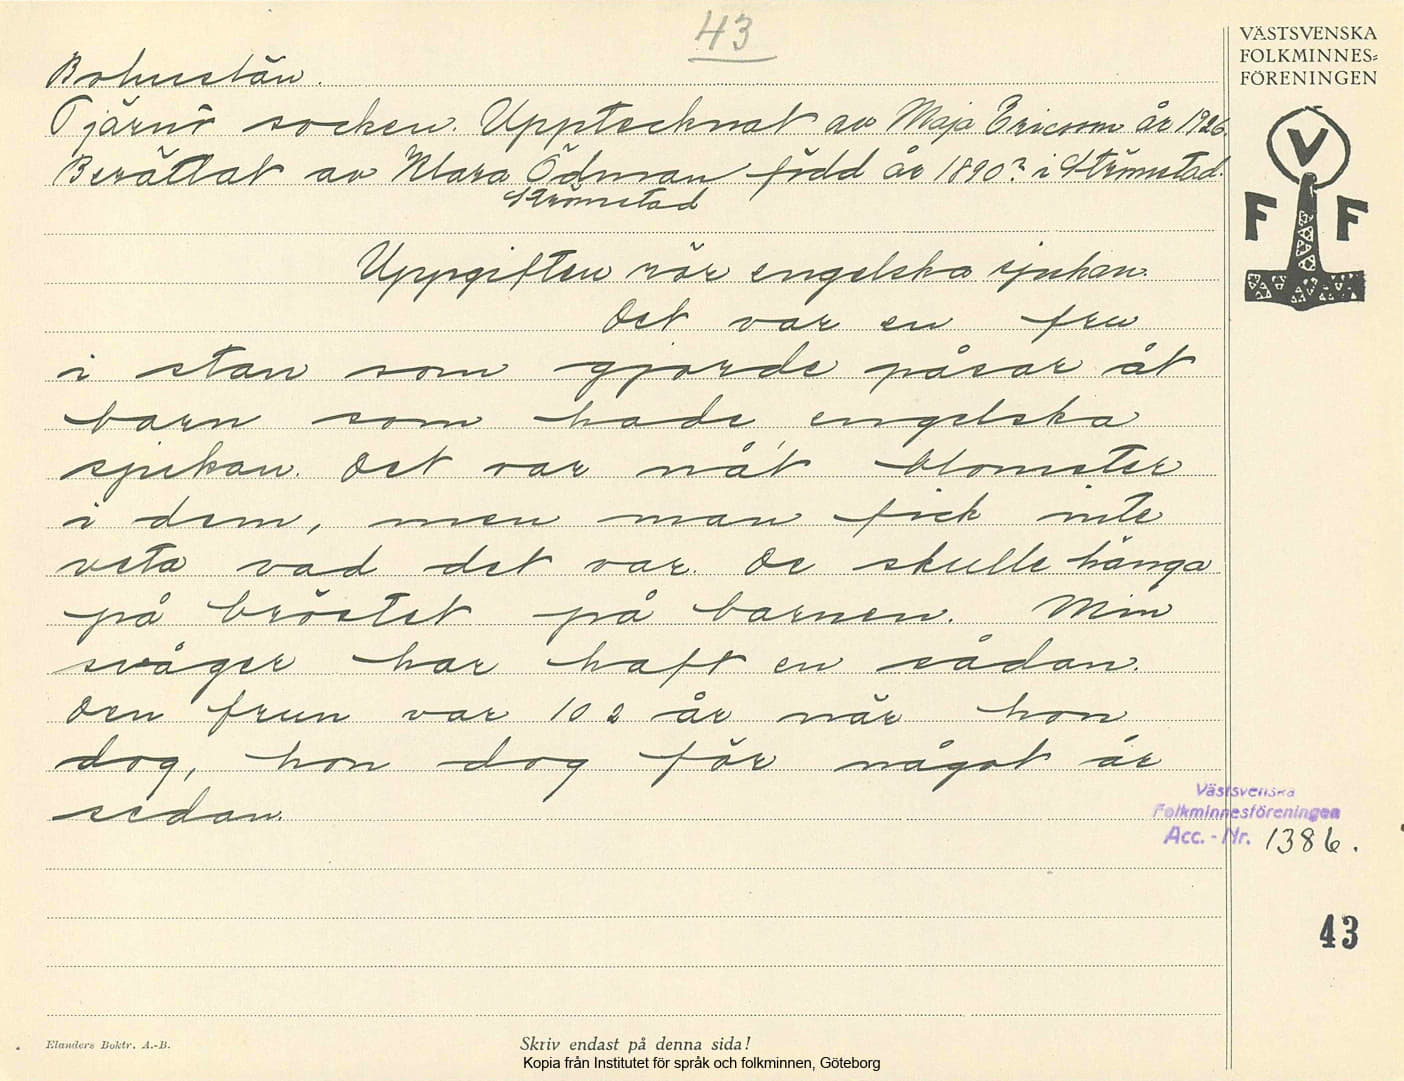 43
VÄSTSVENSKA
FOLKMINNES=
FÖRENINGEN
Bohuslän.
Tjärnö socken. Upptecknat av Maja Ericsson år 1926.
Berättat av Klara Ödman född år 1890? i Strömstad.
Strömstad
V
F F
Uppgiften rör engelska sjukan.
Det var en fru
i stan som gjorde påsar åt
barn som hade engelska
sjukan. Det var nåt blomster
i dem, men man fick inte
veta vad det var. De skulle hänga
på bröstet på barnen. Min
svåger har haft en sådan.
Den frun var 102 år när hon
dog, hon dog för något år
sedan.
Västsvenska
Folkminnesföreningen
Acc. - Nr. 1386.
43
Elanders Boktr. A.-B.
Skriv endast på denna sida!
Kopia från Institutet för språk och folkminnen, Göteborg